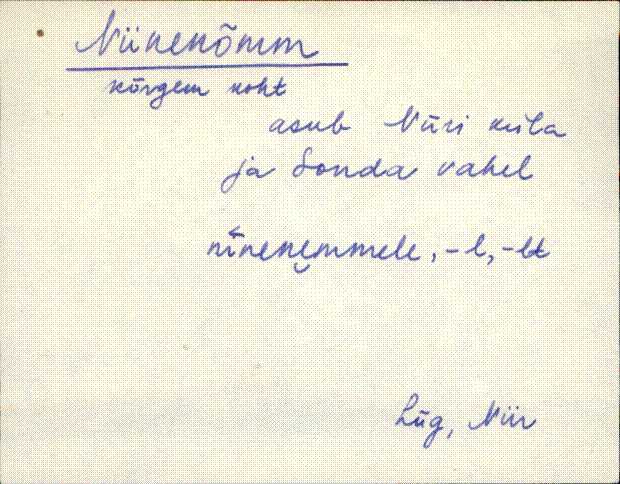 Niinenõmm
kõrgem koht
asub Nüri küla
ja Sonda vahel
nīnenemmele, -l, -lt
Lüg, Niir